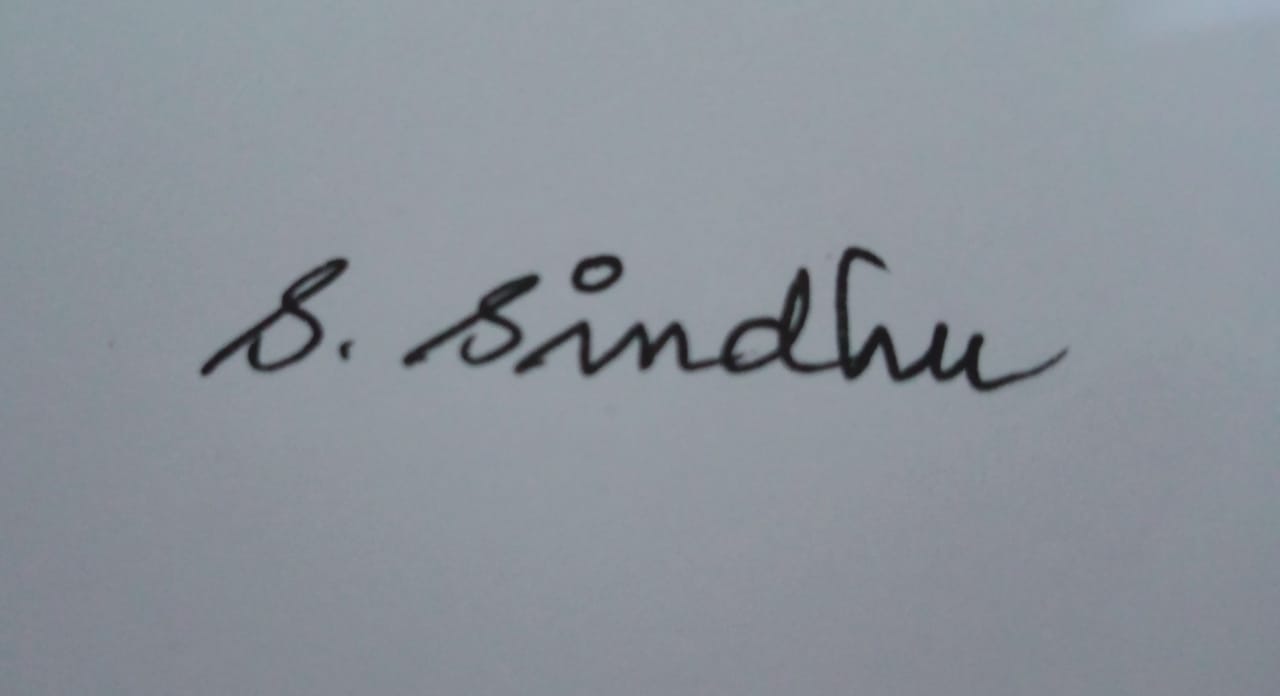 S. Sindhu